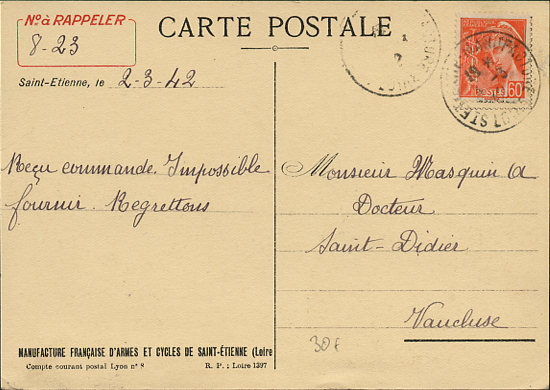 Nº à RAPPELER
8-23
CARTE POSTALE
60
POSTES
Saint-Etienne, le 2-3-42
Reçu commande. Impossible
fournir. Regrettons
Monsieur Masquin A
Docteur
Saint-Didier
Vaucluse
MANUFACTURE FRANÇAISE D'ARMES ET CYCLES DE SAINT-ÉTIENNE (Loire
Compte courant postal Lyon nº 8
R. P. ; Loire 1397
30f